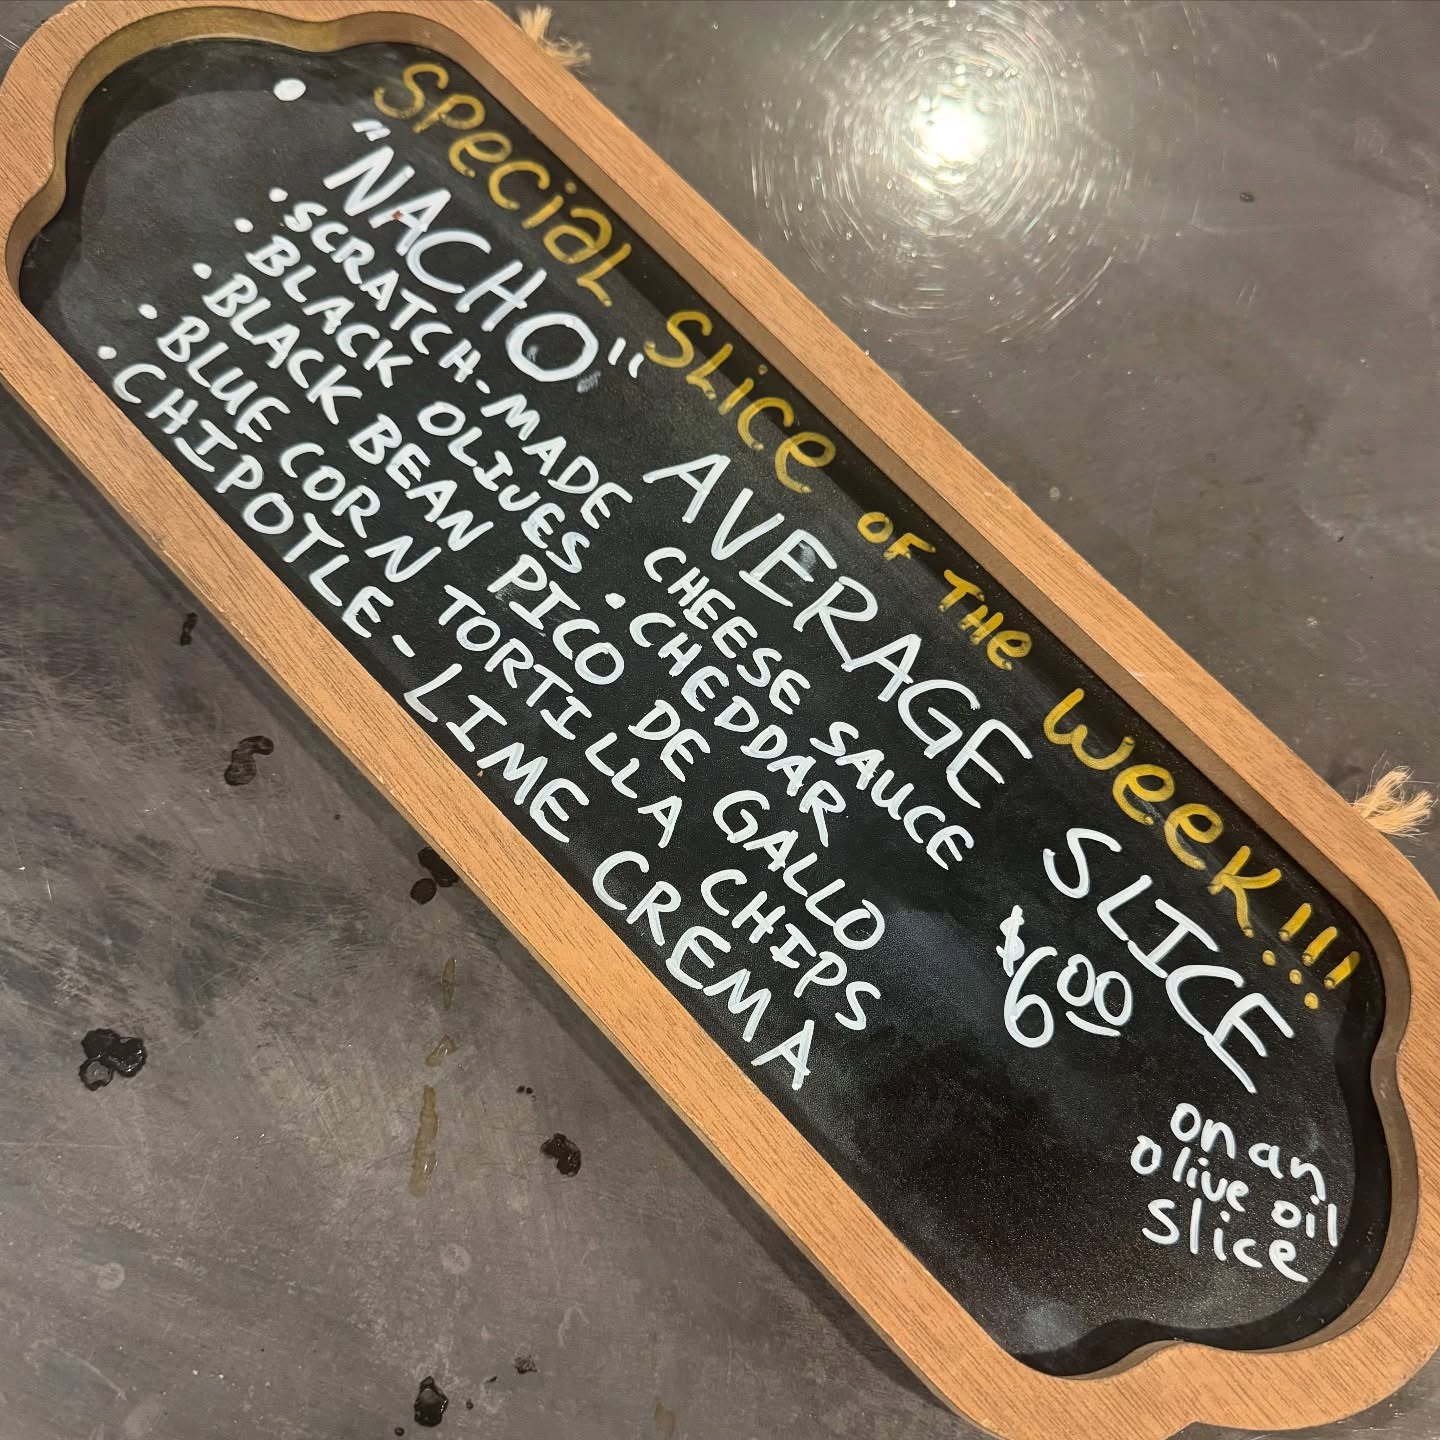 Special Slice of the Week!!!
"NACHO" AVERAGE SLICE
• SCRATCH-MADE CHEESE SAUCE
• BLACK OLIVES • CHEDDAR
• BLACK BEAN PICO DE GALLO
• BLUE CORN TORTILLA CHIPS
• CHIPOTLE-LIME CREMA
$6.00
on an
olive oil
slice